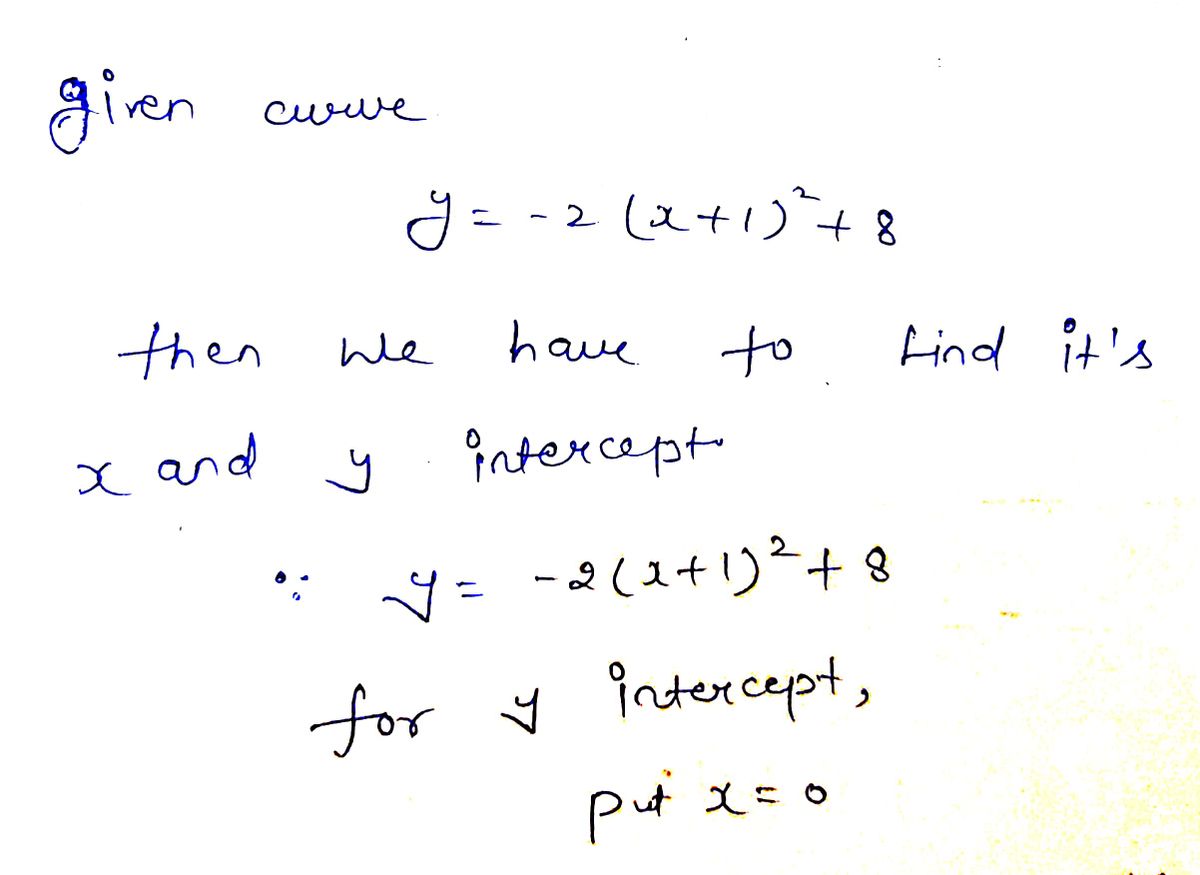 given curve
y = -2 (x+1)² + 8
then we have to find it's
x and y intercept
∵ y = -2(x+1)² + 8
for y intercept,
put x = 0